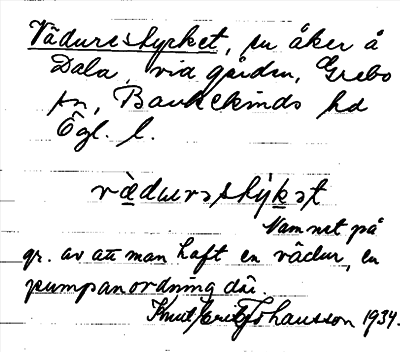 Vädursstycket, en åker å
Dala, vid gården, Grebo
sn, Bankekinds hd
Ögl. l.
vä̀dursstýkət
Namnet på
gr. av att man haft en vädur, en
pumpanordning där.
Knut Erik Johansson 1934.